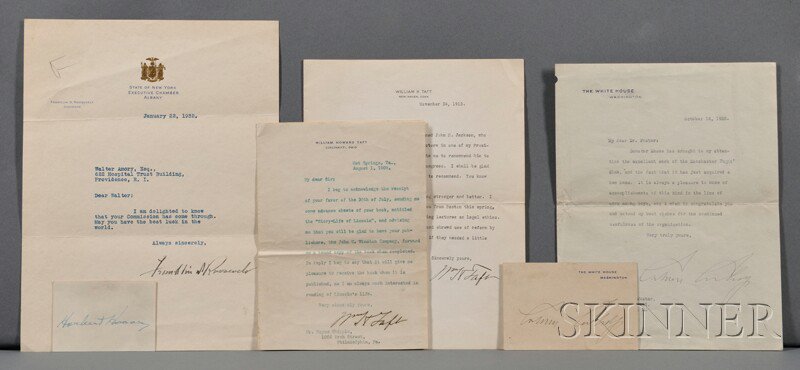 STATE OF NEW YORK
EXECUTIVE CHAMBER
ALBANY
FRANKLIN D. ROOSEVELT
GOVERNOR
January 22, 1932.
Walter Amory, Esq.,
622 Hospital Trust Building,
Providence, R. I.
Dear Walter:
I am delighted to know
that your Commission has come through.
May you have the best luck in the
world.
Always sincerely,
Franklin D Roosevelt
Herbert Hoover
WILLIAM HOWARD TAFT
CINCINNATI, OHIO
Hot Springs, Va.,
August 1, 1908.
My dear Sir:
I beg to acknowledge the receipt
of your favor of the 30th of July, sending me
some advance sheets of your book, entitled
the "Story-Life of Lincoln", and advising
me that you will be glad to have your pub-
lishers, the John C. Winston Company, forward
a copy of the book when completed.
In reply I beg to say that it will give me
pleasure to receive the book when it is
published, as I am always much interested in
reading of Lincoln's life.
Very sincerely yours,
Wm H Taft
Mr. Wayne Whipple,
Arch Street,
Philadelphia, Pa.
WILLIAM H. TAFT
NEW HAVEN, CONN
November 24, 1913.
John B. Jackson, who
in one of my
as to recommend him to
I shall be glad
to recommend. You know
stronger and better. I
from Boston this spring,
lectures on legal ethics.
and shrewd use of
if they needed a little
Sincerely yours,
Wm H Taft
THE WHITE HOUSE
WASHINGTON
October
My dear Mr.
has brought to my atten-
tion the excellent work of the
and the fact that it has just acquired a
new home. It is always a pleasure to know of
accomplishments of this kind in the line of
and I wish to congratulate
you and extend my best wishes for the continued
usefulness of the organization.
Very truly yours,
Calvin Coolidge
THE WHITE HOUSE
WASHINGTON
Calvin Coolidge
SKINNER